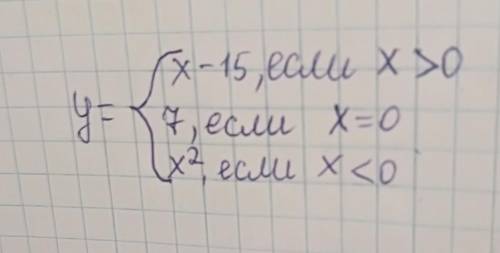 x-15, если x>0
y= 7, если x=0
x², если x<0